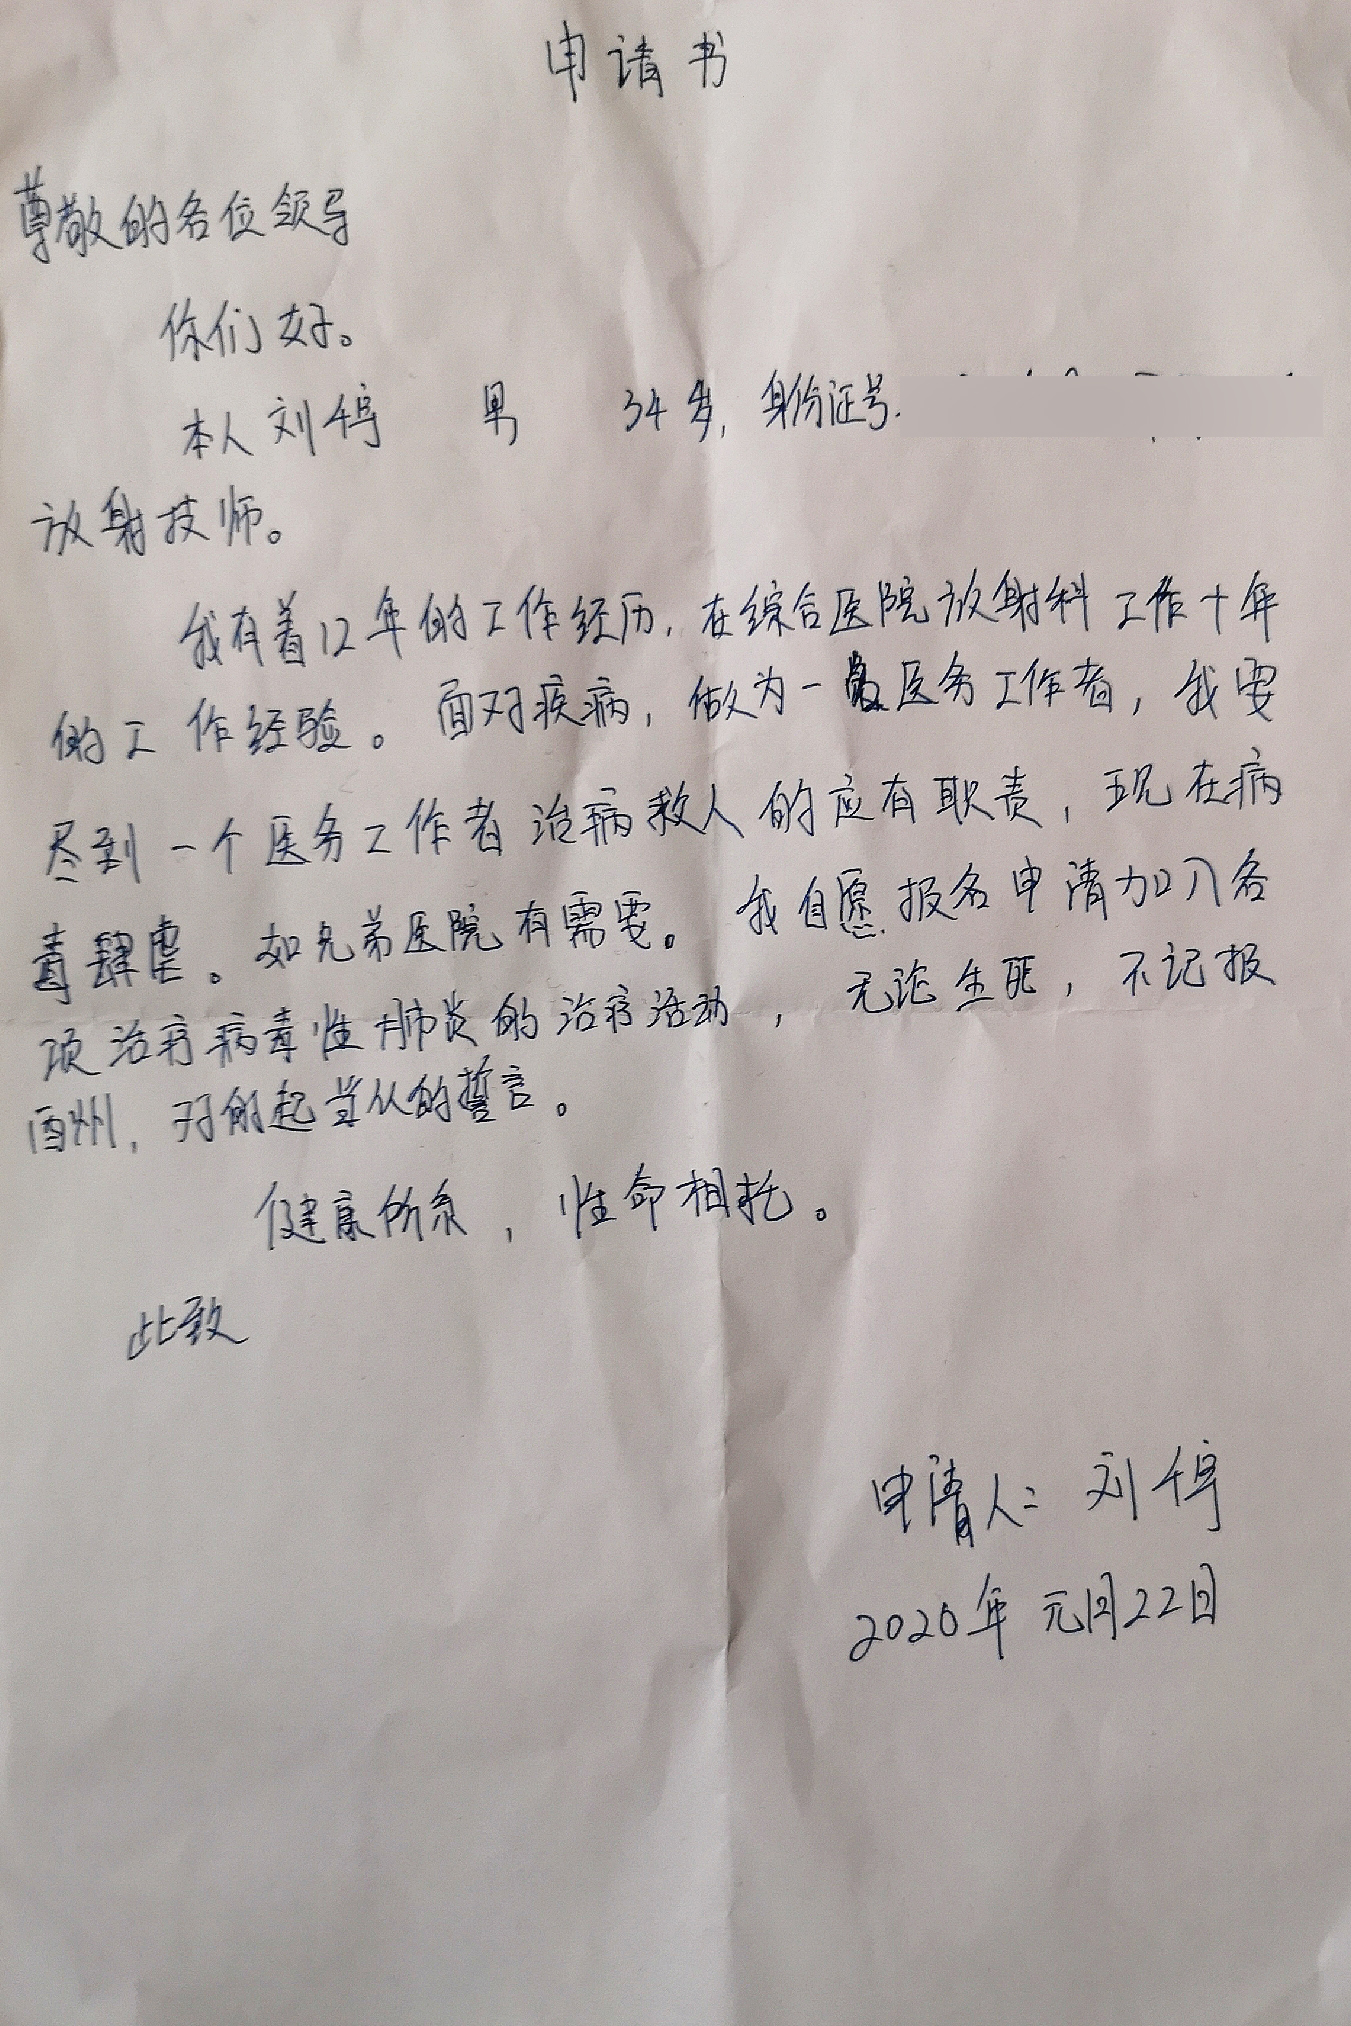 申请书
尊敬的各位领导
你们好。
本人刘停 男 34岁, 身份证号.
放射技师。
我有着12年的工作经历, 在综合医院放射科工作十年
的工作经验。面对疾病, 做为一名医务工作者, 我要
尽到一个医务工作者治病救人的应有职责, 现在病
毒肆虐。如兄弟医院有需要。我自愿报名申请加入各
项治疗病毒性肺炎的治疗活动, 无论生死, 不记报
酉州, 对的起当从的誓言。
健康所系, 性命相托。
此致
申请人: 刘停
2020年元月22日